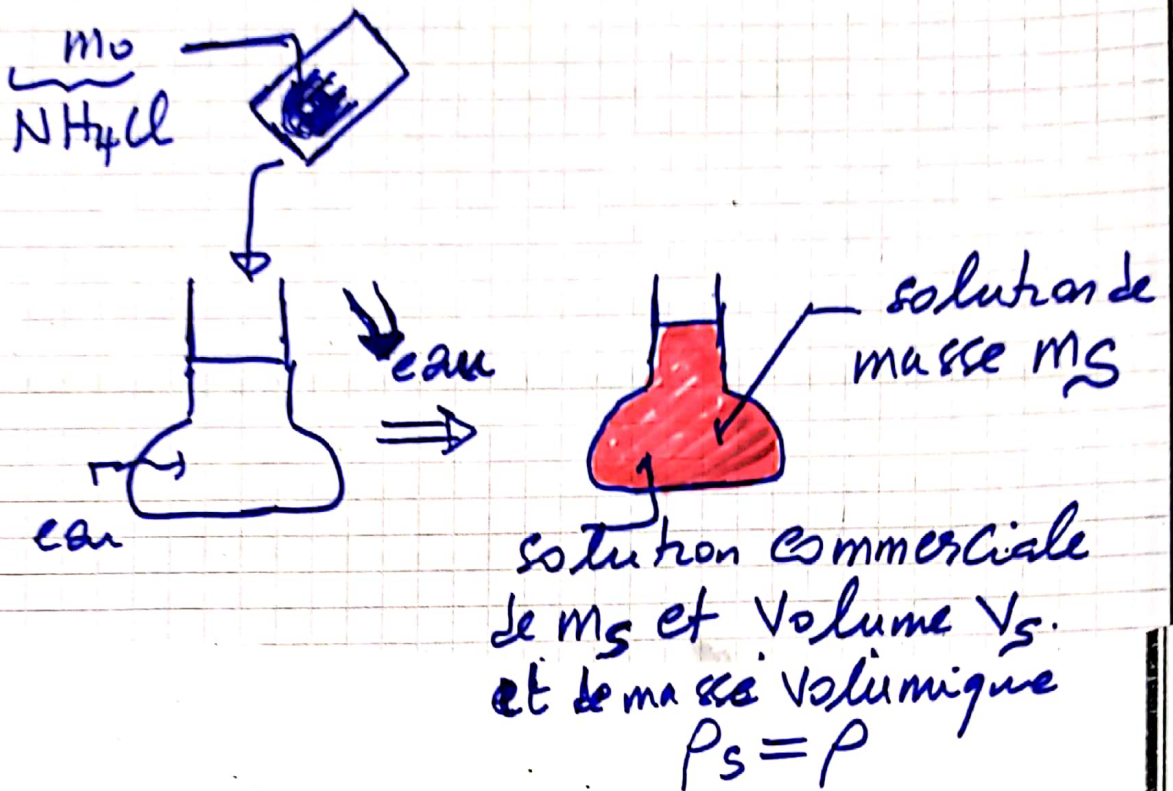 m₀
NH₄Cl
eau
eau
solution de
masse mS
solution commerciale
de mS et Volume VS.
et de masse Volumique
ρS = ρ